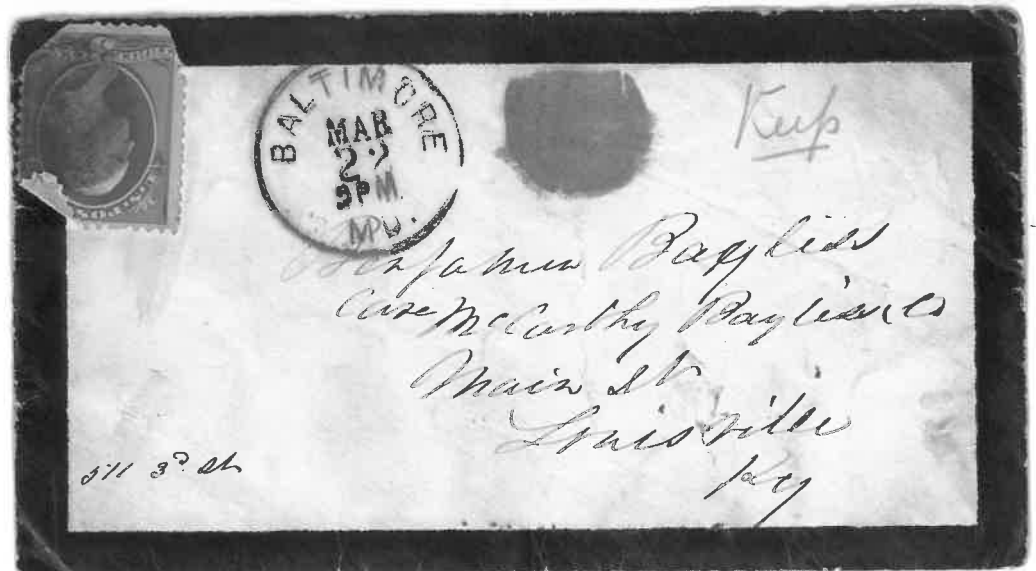 BALTIMORE
MAR
22
9PM
MD.
Keep
Benjamin Bayliss
Care McCarthy Bayliss & Co
Main St
Louisville
Ky
511 3d. St